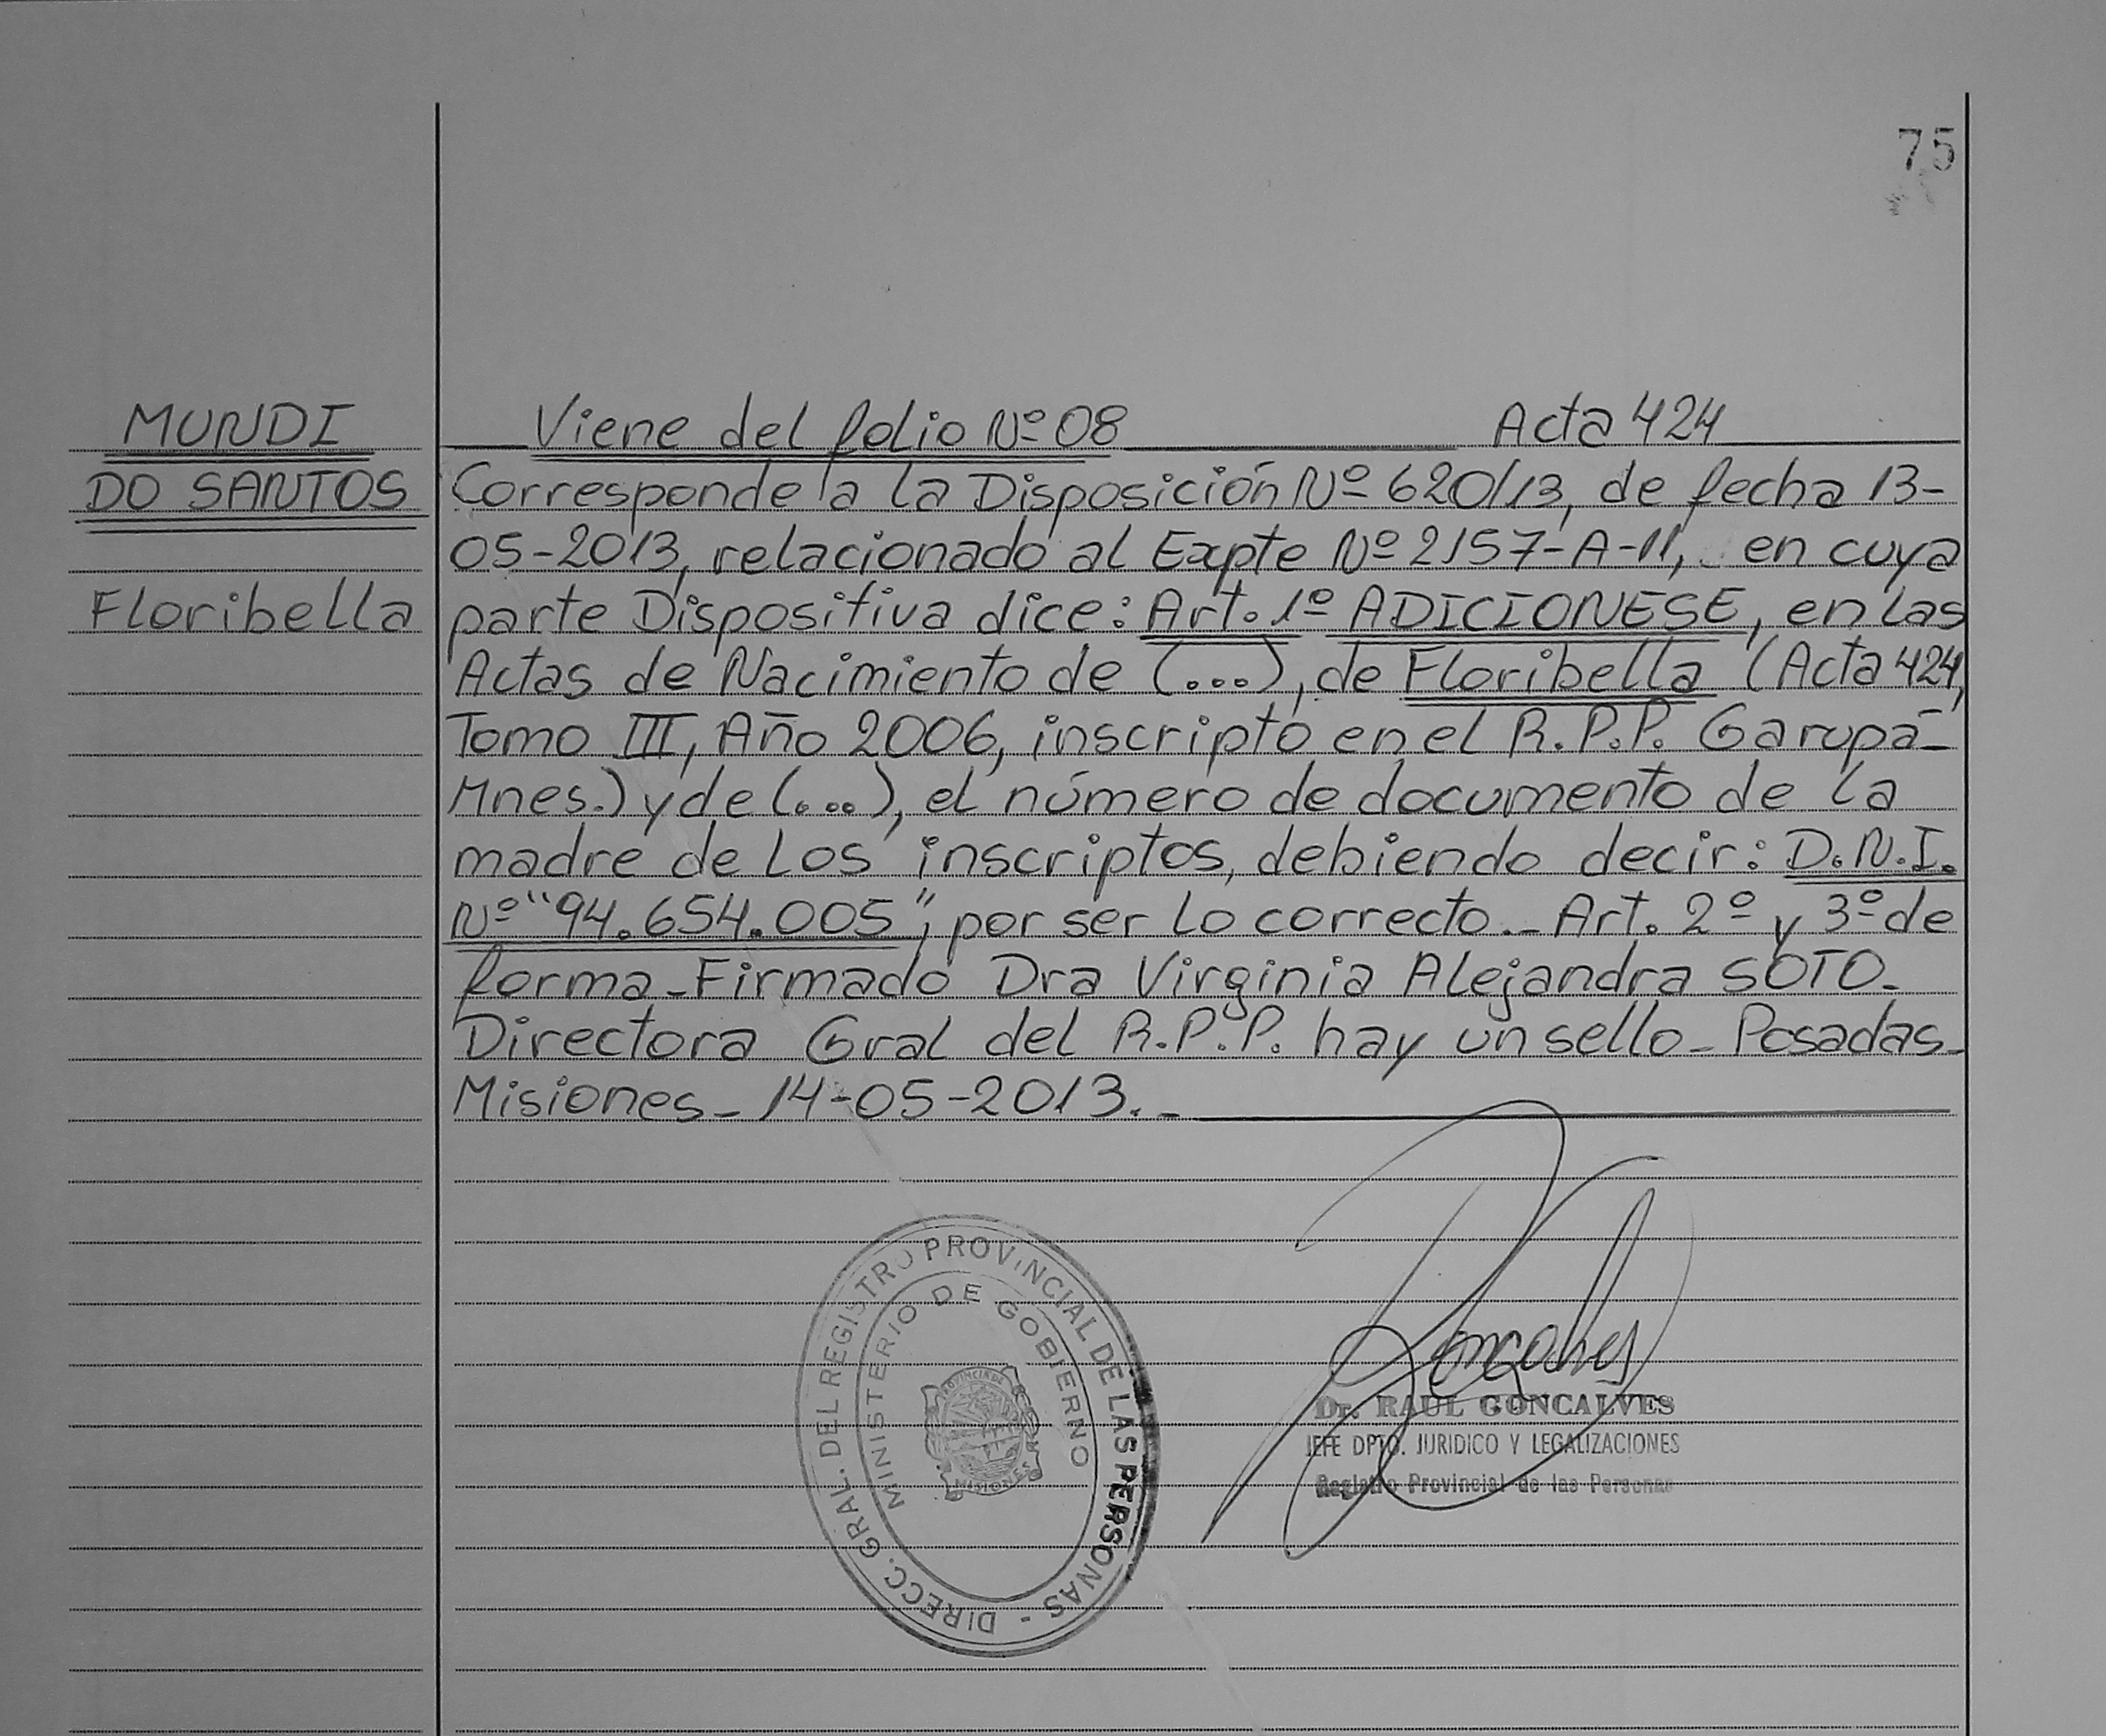 75
MUNDI
DO SANTOS
Floribella
Viene del folio Nº 08 Acta 424
Corresponde a la Disposición Nº 620/13, de fecha 13-
05-2013, relacionado al Expte Nº 2157-A-11, en cuya
parte Dispositiva dice: Art. 1º ADICIONESE, en las
Actas de Nacimiento de (...), de Floribella (Acta 424,
Tomo III, Año 2006, inscripto en el R.P.P. Garupá-
Mnes.) y de (...), el número de documento de la
madre de los inscriptos, debiendo decir: D.N.I.
Nº "94.654.005", por ser lo correcto.- Art. 2º y 3º de
forma-Firmado Dra Virginia Alejandra SOTO-
Directora Gral del R.P.P. hay un sello-Posadas-
Misiones-14-05-2013.-
DIRECC. GRAL. DEL REGISTRO PROVINCIAL DE LAS PERSONAS -
MINISTERIO DE GOBIERNO
PROVINCIA DE
MISIONES
Goncalves
Dr. RAUL GONCALVES
JEFE DPTO. JURIDICO Y LEGALIZACIONES
Registro Provincial de las Personas